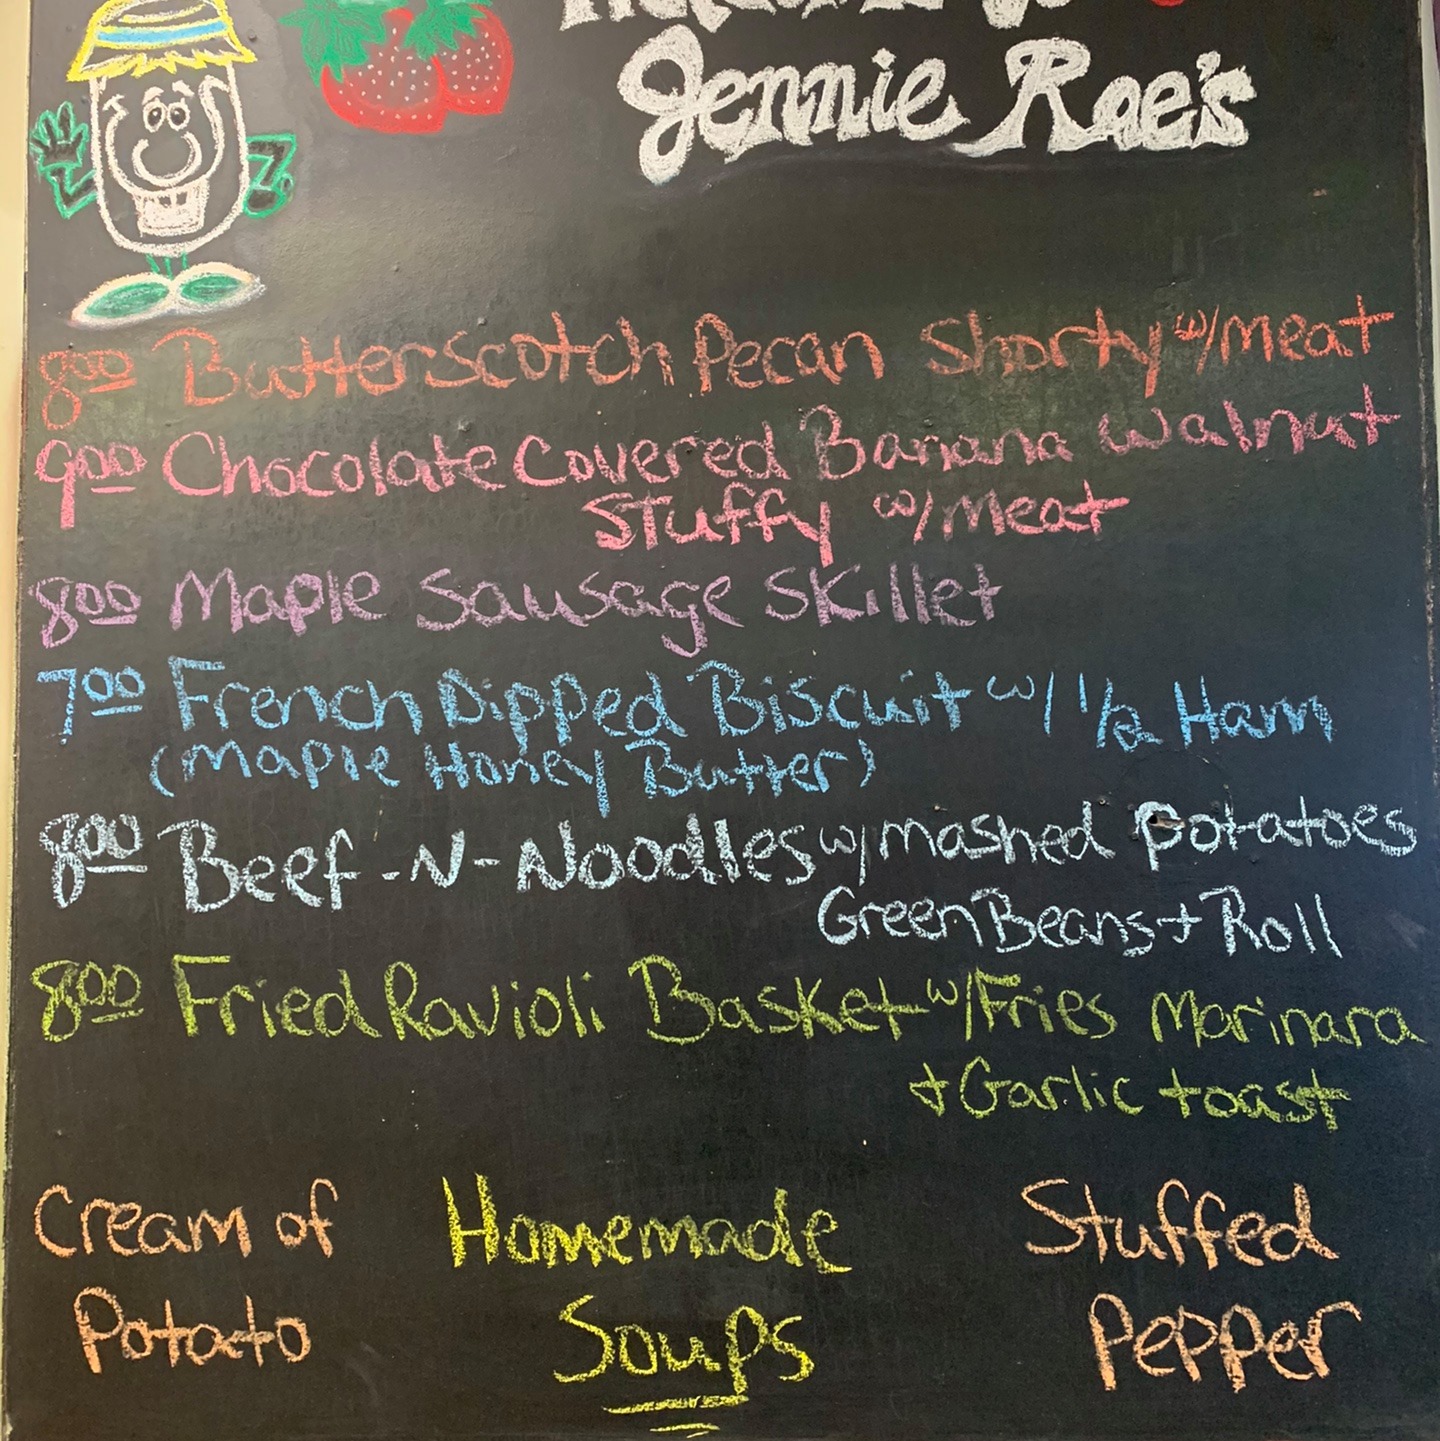 Jennie Rae's
800 Butterscotch Pecan Shorty w/meat
900 Chocolate Covered Banana Walnut
Stuffy w/meat
800 Maple Sausage Skillet
700 French Dipped Biscuit w/ 1/2 Ham
(Maple Honey Butter)
800 Beef-N-Noodles w/mashed potatoes
Green Beans + Roll
800 Fried Ravioli Basket w/Fries Marinara
+ Garlic toast
Cream of Homemade Stuffed
Potato Soups Pepper